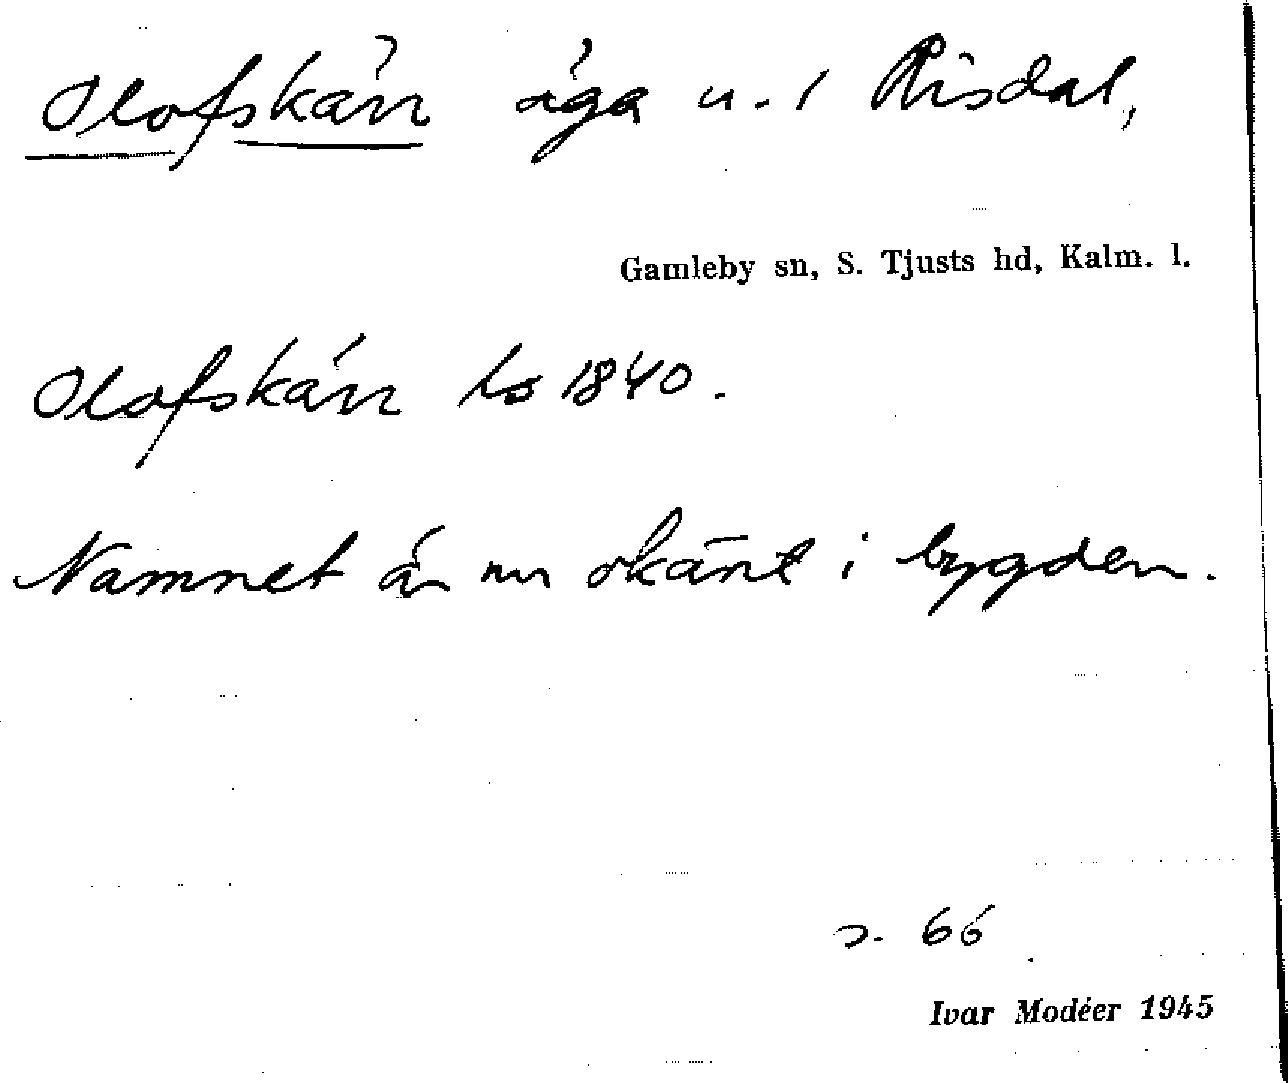 Olofskärr äga u. / Risdal,
Gamleby sn, S. Tjusts hd, Kalm. l.
Olofskärr Ls 1840.
Namnet är nu okänt i bygden.
s. 66
Ivar Modéer 1945